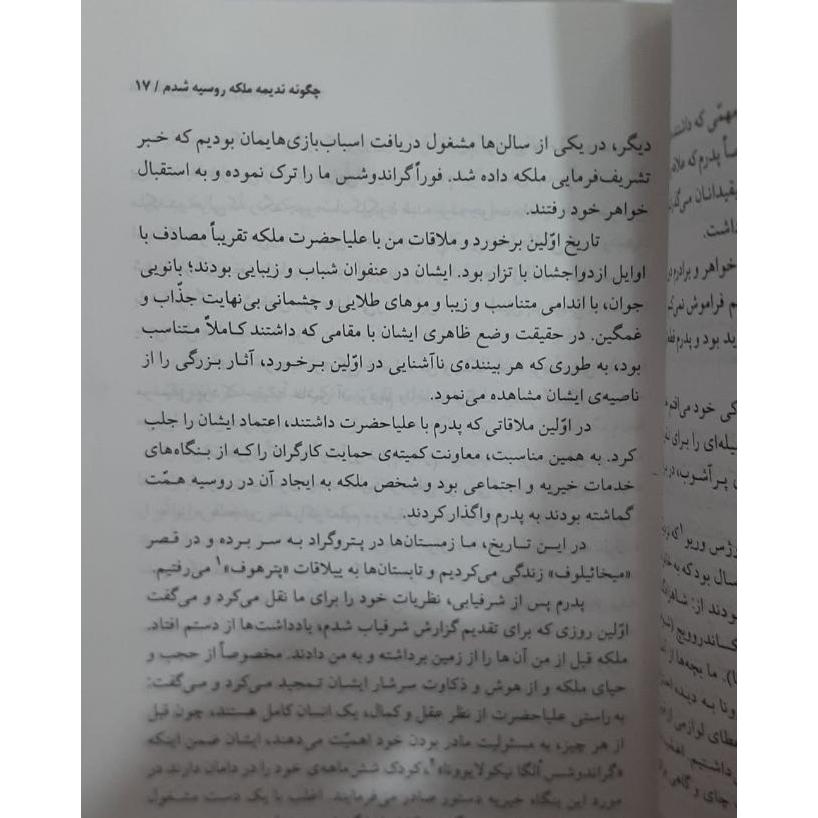 چگونه ندیمه ملکه روسیه شدم / ۱۷
دیگر، در یکی از سالن‌ها مشغول دریافت اسباب‌بازی‌هایمان بودیم که خبر
تشریف‌فرمایی ملکه داده شد. فوراً گراندوشس ما را ترک نموده و به استقبال
خواهر خود رفتند.
تاریخ اوّلین برخورد و ملاقات من با علیاحضرت ملکه تقریباً مصادف با
اوایل ازدواجشان با تزار بود. ایشان در عنفوان شباب و زیبایی بودند؛ بانویی
جوان، با اندامی متناسب و زیبا و موهای طلایی و چشمانی بی‌نهایت جذّاب و
غمگین. در حقیقت وضع ظاهری ایشان با مقامی که داشتند کاملاً متناسب
بود، به طوری که هر بیننده‌ی ناآشنایی در اوّلین برخورد، آثار بزرگی را از
ناصیه‌ی ایشان مشاهده می‌نمود.
در اوّلین ملاقاتی که پدرم با علیاحضرت داشتند، اعتماد ایشان را جلب
کرد. به همین مناسبت، معاونت کمیته‌ی حمایت کارگران را که از بنگاه‌های
خدمات خیریه و اجتماعی بود و شخص ملکه به ایجاد آن در روسیه همّت
گماشته بودند به پدرم واگذار کردند.
در این تاریخ، ما زمستان‌ها در پتروگراد به سر برده و در قصر
«میخائیلوف» زندگی می‌کردیم و تابستان‌ها به ییلاقات «پترهوف»۱ می‌رفتیم.
پدرم پس از شرفیابی، نظریات خود را برای ما نقل می‌کرد و می‌گفت
اوّلین روزی که برای تقدیم گزارش شرفیاب شدم، یادداشت‌ها از دستم افتاد.
ملکه قبل از من آن ها را از زمین برداشته و به من دادند. مخصوصاً از حجب و
حیای ملکه و از هوش و ذکاوت سرشار ایشان تمجید می‌کرد و می‌گفت:
به راستی علیاحضرت از نظر عقل و کمال، یک انسان کامل هستند، چون قبل
از هر چیز، به مسئولیت مادر بودن خود اهمیّت می‌دهند، ایشان ضمن اینکه
«گراندوشس اُلگا نیکولایوونا»۲، کودک شش‌ماهه‌ی خود را در دامان دارند در
مورد این بنگاه خیریه دستور صادر می‌فرمایند. اغلب با یک دست مشغول
مهمّی که داشتند
پدرم که
داشت.
خواهر و برادرم
فراموش
بود و پدرم
خود
را برای
پرآشوب، در
سال بود که به
بودند از:
ما بچه‌ها از
به دیدن
داشتیم.
چای و گاهی